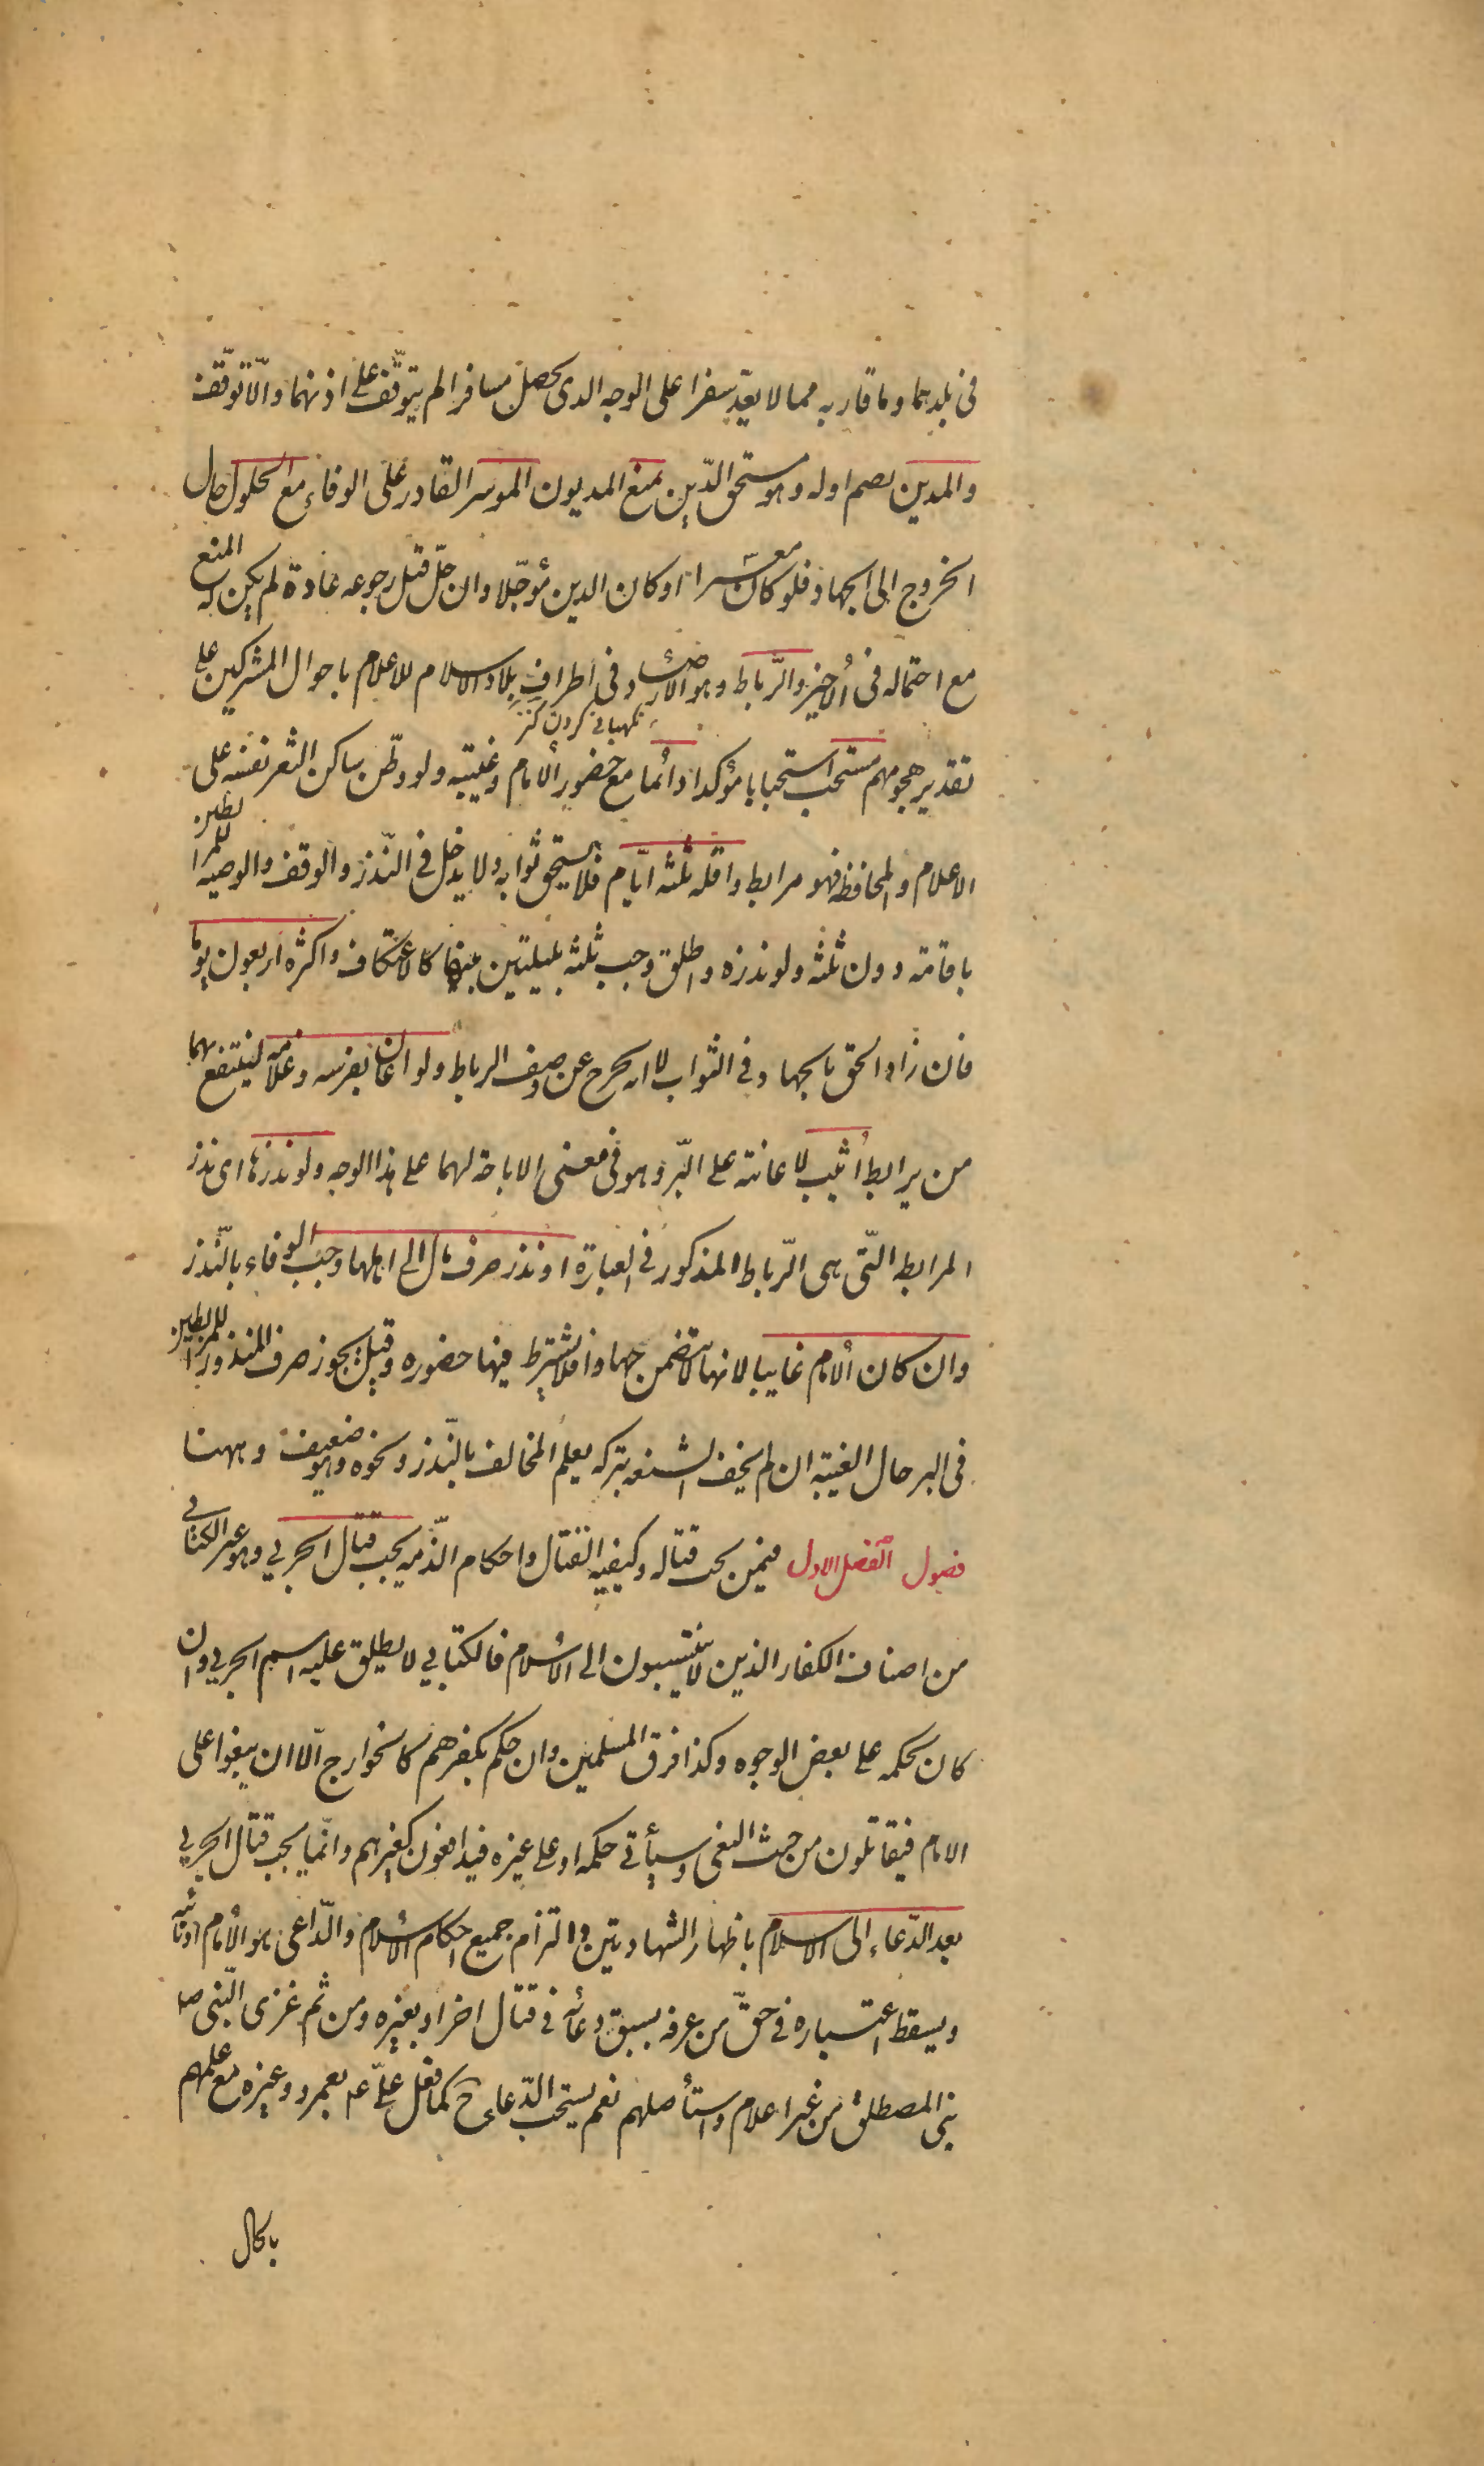 فى بلدهما وما قاربه مما لا يعدّ سفرا على الوجه الدى يحصل مسافرا لم يتوقّف على اذنهما والّا توقّف
والمدين بصم اوله وهو مستحق الدّين يمنع المديون الموسر القادر على الوفاء مع الحلول حال
الخروج الى الجهاد فلو كان معسرا او كان الدين مؤجّلا وان حلّ قبل رجوعه عادة لم يكن له المنع
مع احتماله فى الاخير والرّباط وهو الارصاد فى اطراف بلاد الاسلام للاعلام باحوال المشركين على
نكهبانى كردن كنز
تقدير هجومهم مستحب استحبابا مؤكدا دائما مع حضور الامام وغيبته ولو وطّن ساكن الثغر نفسه على
الاعلام والمحافظه فهو مرابط واقله ثلثه ايّام فلا يستحق ثوابه ولا يدخل فى النّذر والوقف والوصيه للمرابطين
باقامته دون ثلثه ولو نذره واطلق وجب ثلثه بليلتين بينها كالاعتكاف واكثره اربعون يوما
فان زاد الحق بالجهاد فى الثواب لا انه يخرج عن وصف الرباط ولو اعان بفرسه وغلامه لينتفع بهما
من يرابط اثيب لاعانته على البّر وهو فى معنى الاباحة لهما على هذا الوجه ولو نذرها اى نذر
المرابطه الّتى هى الرّباط المذكور فى العبارة او نذر صرف مال الى اهلها وجب الوفاء بالنّذر
وان كان الامام غايبا لانها لا تتضمن جهادا فلا يشترط فيها حضوره وقيل يجوز صرف المنذور للمرابطين
فى البر حال الغيبه ان لم يخف الشنعه بتركه يعلم المخالف بالنّذر ونحوه وهو ضعيف وههنا
فصول الفصل الاول فيمن يجب قتاله وكيفيه القتال واحكام الذّميه يجب قتال الحربى وهو غير الكتابى
من اصناف الكفار الذين لا ينتسبون الى الاسلام فالكتابى لا يطلق عليه اسم الحربى وان
كان بحكمه على بعض الوجوه وكذا فرق المسلمين وان حكم بكفرهم كالخوارج الّا ان يبغوا على
الامام فيقاتلون من حيث البغى وسيأتى حكمه او على غيره فيدافعون كغيرهم وانّما يجب قتال الحربى
بعد الدّعاء الى الاسلام باظهار الشهادتين والتزام جميع احكام الاسلام والدّاعى هو الامام او نائبه
ويسقط اعتباره فى حقّ من عرفه بسبق دعائه فى قتال اخر او بغيره ومن ثم غزى النّبى صلى
بنى المصطلق من غير اعلام واستأصلهم نعم يستحب الدّعاء ح كما فعل علىّ ع بعمرو وغيره مع علمهم
بالحال